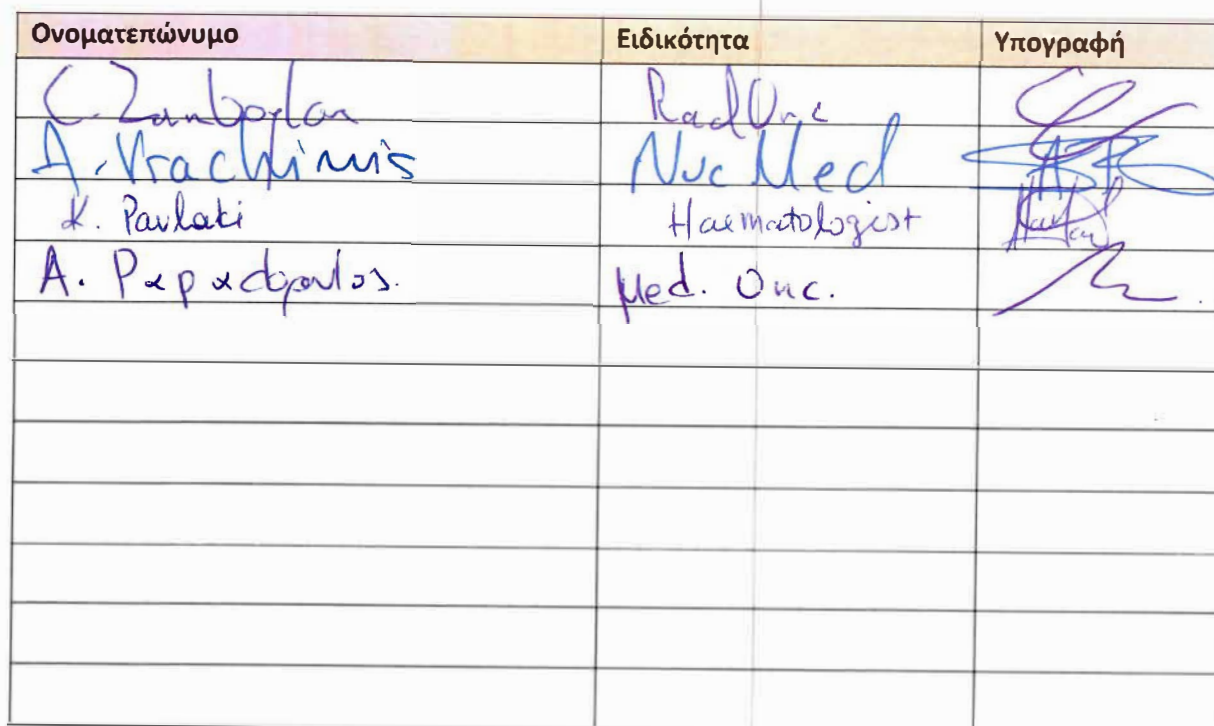 Ονοματεπώνυμο Ειδικότητα Υπογραφή
C. Zamboglou RadOnc
A. Vrachimis Nuc Med
K. Pavlaki Haematologist
A. Papadopoulos. Med. Onc.